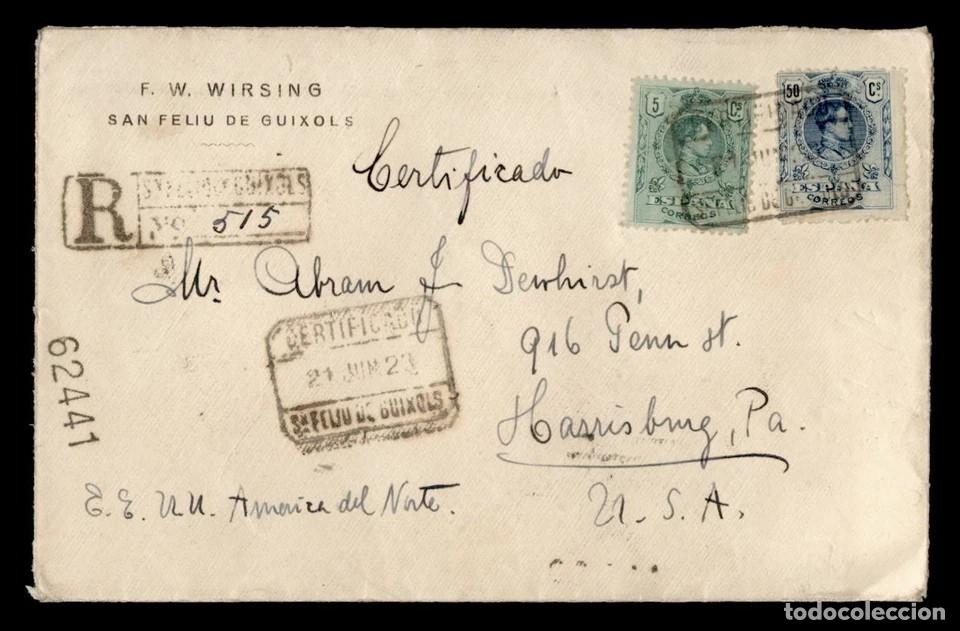 F. W. WIRSING
SAN FELIU DE GUIXOLS
5 Cs
ESPAÑA
CORREOS
50 Cs
ESPAÑA
CORREOS
Certificado
R
Sn FELIU DE GUIXOLS
No 515
Mr. Abram J Dewhirst,
916 Penn st.
Harrisburg, Pa.
U. S. A.
CERTIFICADO
21 JUN 23
Sn FELIU DE GUIXOLS
62441
E. E. U.U. America del Norte.
todocoleccion